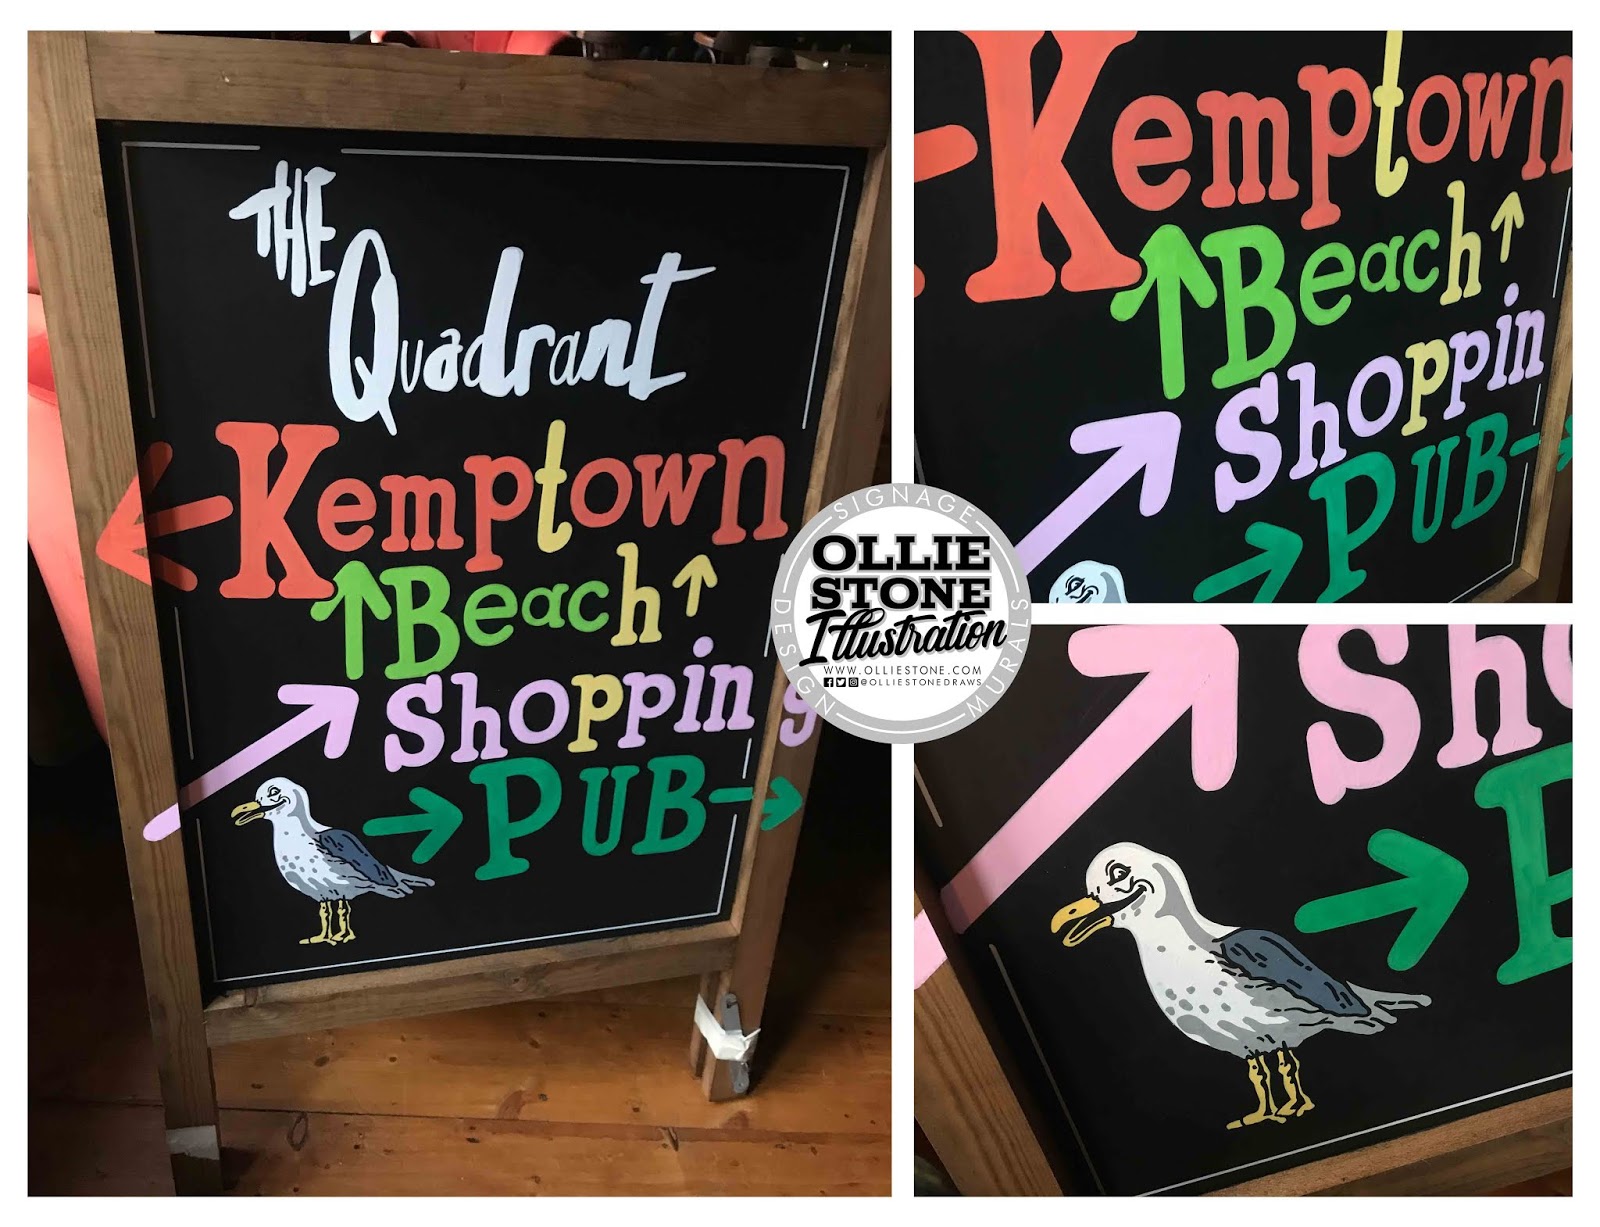 THE
Quadrant
Kemptown
Beach
Shopping
PUB
Kemptown
Beach
Shoppin
PUB
Sho
P
SIGNAGE
DESIGN
MURALS
OLLIE
STONE
Illustration
WWW.OLLIESTONE.COM
@OLLIESTONEDRAWS